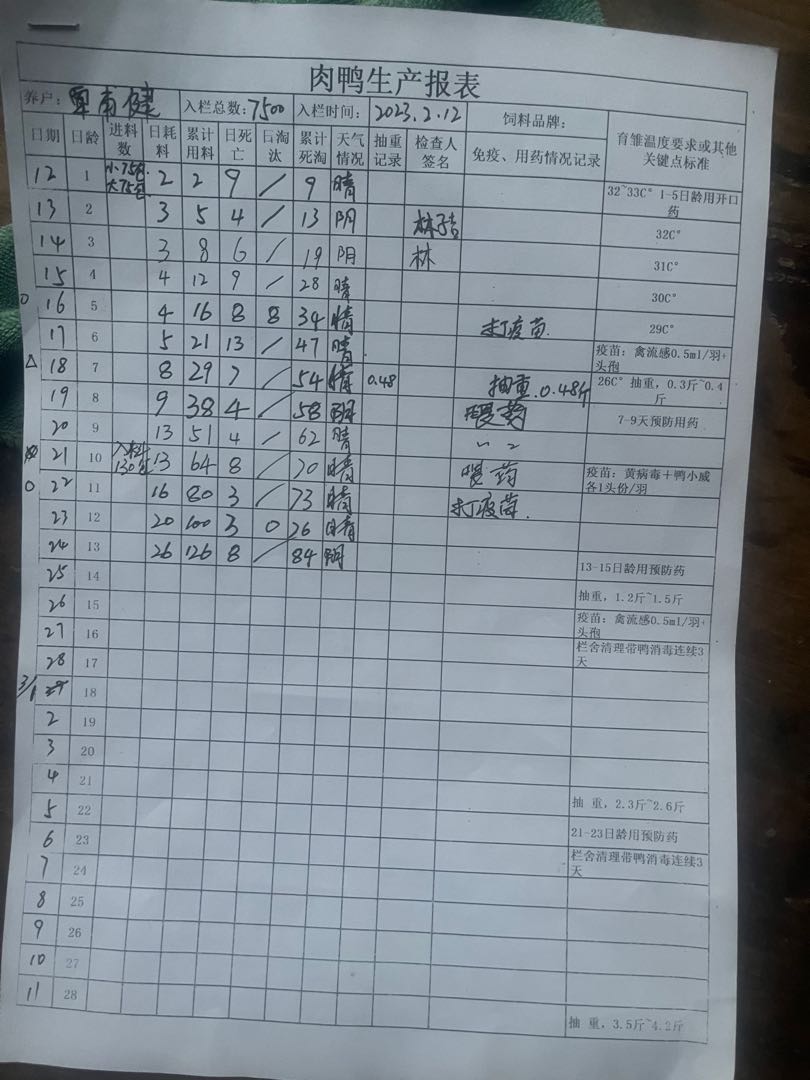 肉鸭生产报表
养户: 覃南健 入栏总数: 7500 入栏时间: 2023.2.12 饲料品牌:
日期 日龄 进料数 日耗料 累计用料 日死亡 日淘汰 累计死淘 天气情况 抽重记录 检查人签名 免疫、用药情况记录 育雏温度要求或其他关键点标准
12 1 小75包 大75包 2 2 9 / 9 晴 32~33C° 1-5日龄用开口药
13 2 3 5 4 / 13 阴 林 32C°
14 3 3 8 6 / 19 阴 林 31C°
15 4 4 12 9 / 28 晴 30C°
0 16 5 4 16 8 8 34 晴 打疫苗 29C°
17 6 5 21 13 / 47 晴 疫苗: 禽流感0.5ml/羽+头孢
△ 18 7 8 29 7 / 54 晴 0.48 抽重0.48斤 26C° 抽重, 0.3斤~0.4斤
19 8 9 38 4 / 58 阴 喂药 7-9天预防用药
20 9 13 51 4 / 62 晴 〃 〃
21 10 入料 130包 13 64 8 / 70 晴 喂药 疫苗: 黄病毒+鸭小威各1头份/羽
0 22 11 16 80 3 / 73 晴 打疫苗
23 12 20 100 3 0 76 晴
24 13 26 126 8 / 84 阴 13-15日龄用预防药
25 14
26 15 抽重, 1.2斤~1.5斤
27 16 疫苗: 禽流感0.5ml/羽+头孢
28 17 栏舍清理带鸭消毒连续3天
3/1 18
2 19
3 20
4 21
5 22 抽 重, 2.3斤~2.6斤
6 23 21-23日龄用预防药
7 24 栏舍清理带鸭消毒连续3天
8 25
9 26
10 27
11 28 抽 重, 3.5斤~4.2斤